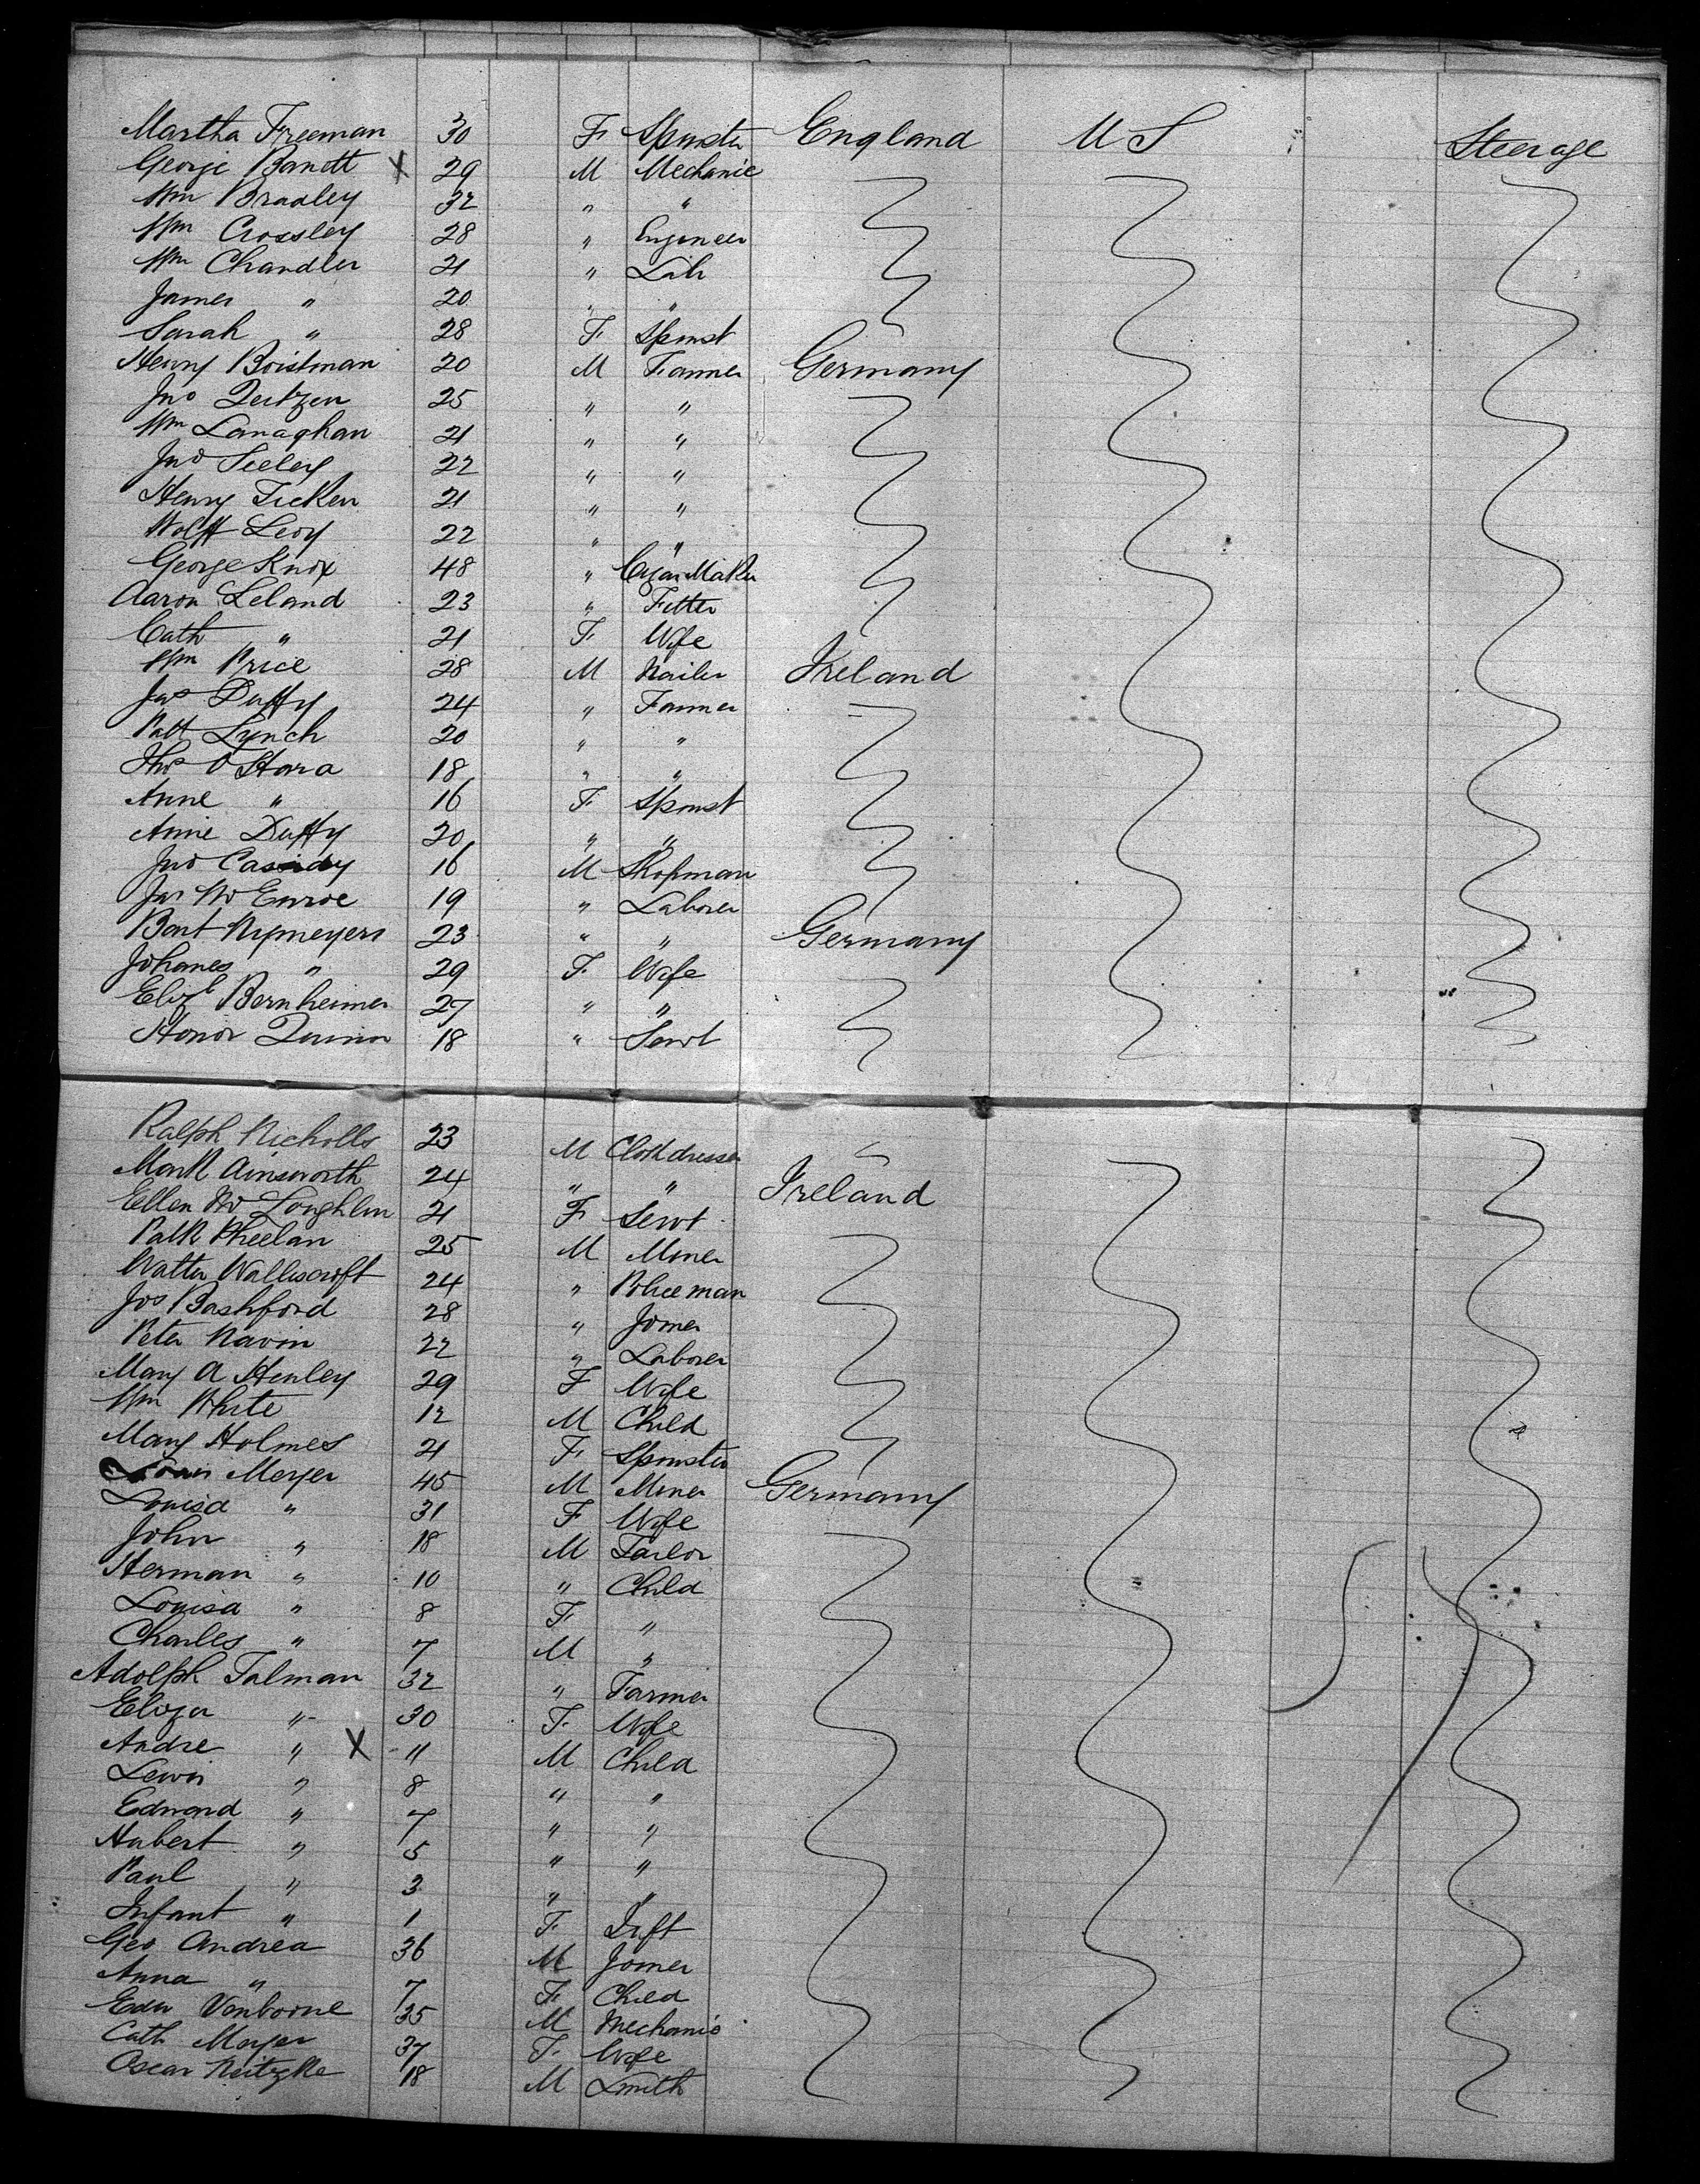 Martha Freeman 30 F Spinster England U S Steerage
George Barrett X 29 M Mechanic
Wm Bradley 32 " "
Wm Crossley 28 " Engineer
Wm Chandler 21 " Lab
James " 20 " "
Sarah " 28 F Spinst
Henry 20 M Farmer Germany
Jno 25 " "
Wm Lanaghan 21 " "
Jno Seeley 22 " "
Henry Ficken 21 " "
Wolff Levy 22 " "
George Knox 48 " Cigar Maker
Aaron Leland 23 " Fitter
Cath " 21 F Wife
Wm Price 28 M Nailer Ireland
Jas Duffy 24 " Farmer
Patk Lynch 20 " "
Thos O'Hara 18 " "
Anne " 16 F Spinst
Annie Duffy 20 " "
Jno Cassidy 16 M Shopman
Jas McEnroe 19 " Laborer
Bart Nymeyers 23 " " Germany
Johanes " 29 F Wife
Elizb Bernheimer 27 " "
Honor Quinn 18 " Servt
Ralph Nicholls 23 M Clothdresser
Mark Ainsworth 24 " " Ireland
Ellen McLoughlin 21 F Servt
Patk Pheelan 25 M Miner
Walter Walliscroft 24 " Policeman
Jos Bashford 28 " Joiner
Peter Navin 22 " Laborer
Mary A Henley 29 F Wife
Wm White 12 M Child
Mary Holmes 21 F Spinster
Louis Meyer 45 M Miner Germany
Louisa " 31 F Wife
John " 18 M Tailor
Herman " 10 " Child
Louisa " 8 F "
Charles " 7 M "
Adolph Talman 32 " Farmer
Eliza " 30 F Wife
Andre " X 11 M Child
Lewis " 8 " "
Edward " 7 " "
Hubert " 5 " "
Paul " 3 " "
Infant " 1 F Inft
Geo Andrea 36 M Joiner
Anna " 7 F Child
Edw Vanborne 35 M Mechanic
Cath Meyer 37 F Wife
Oscar Neitzke 18 M Smith